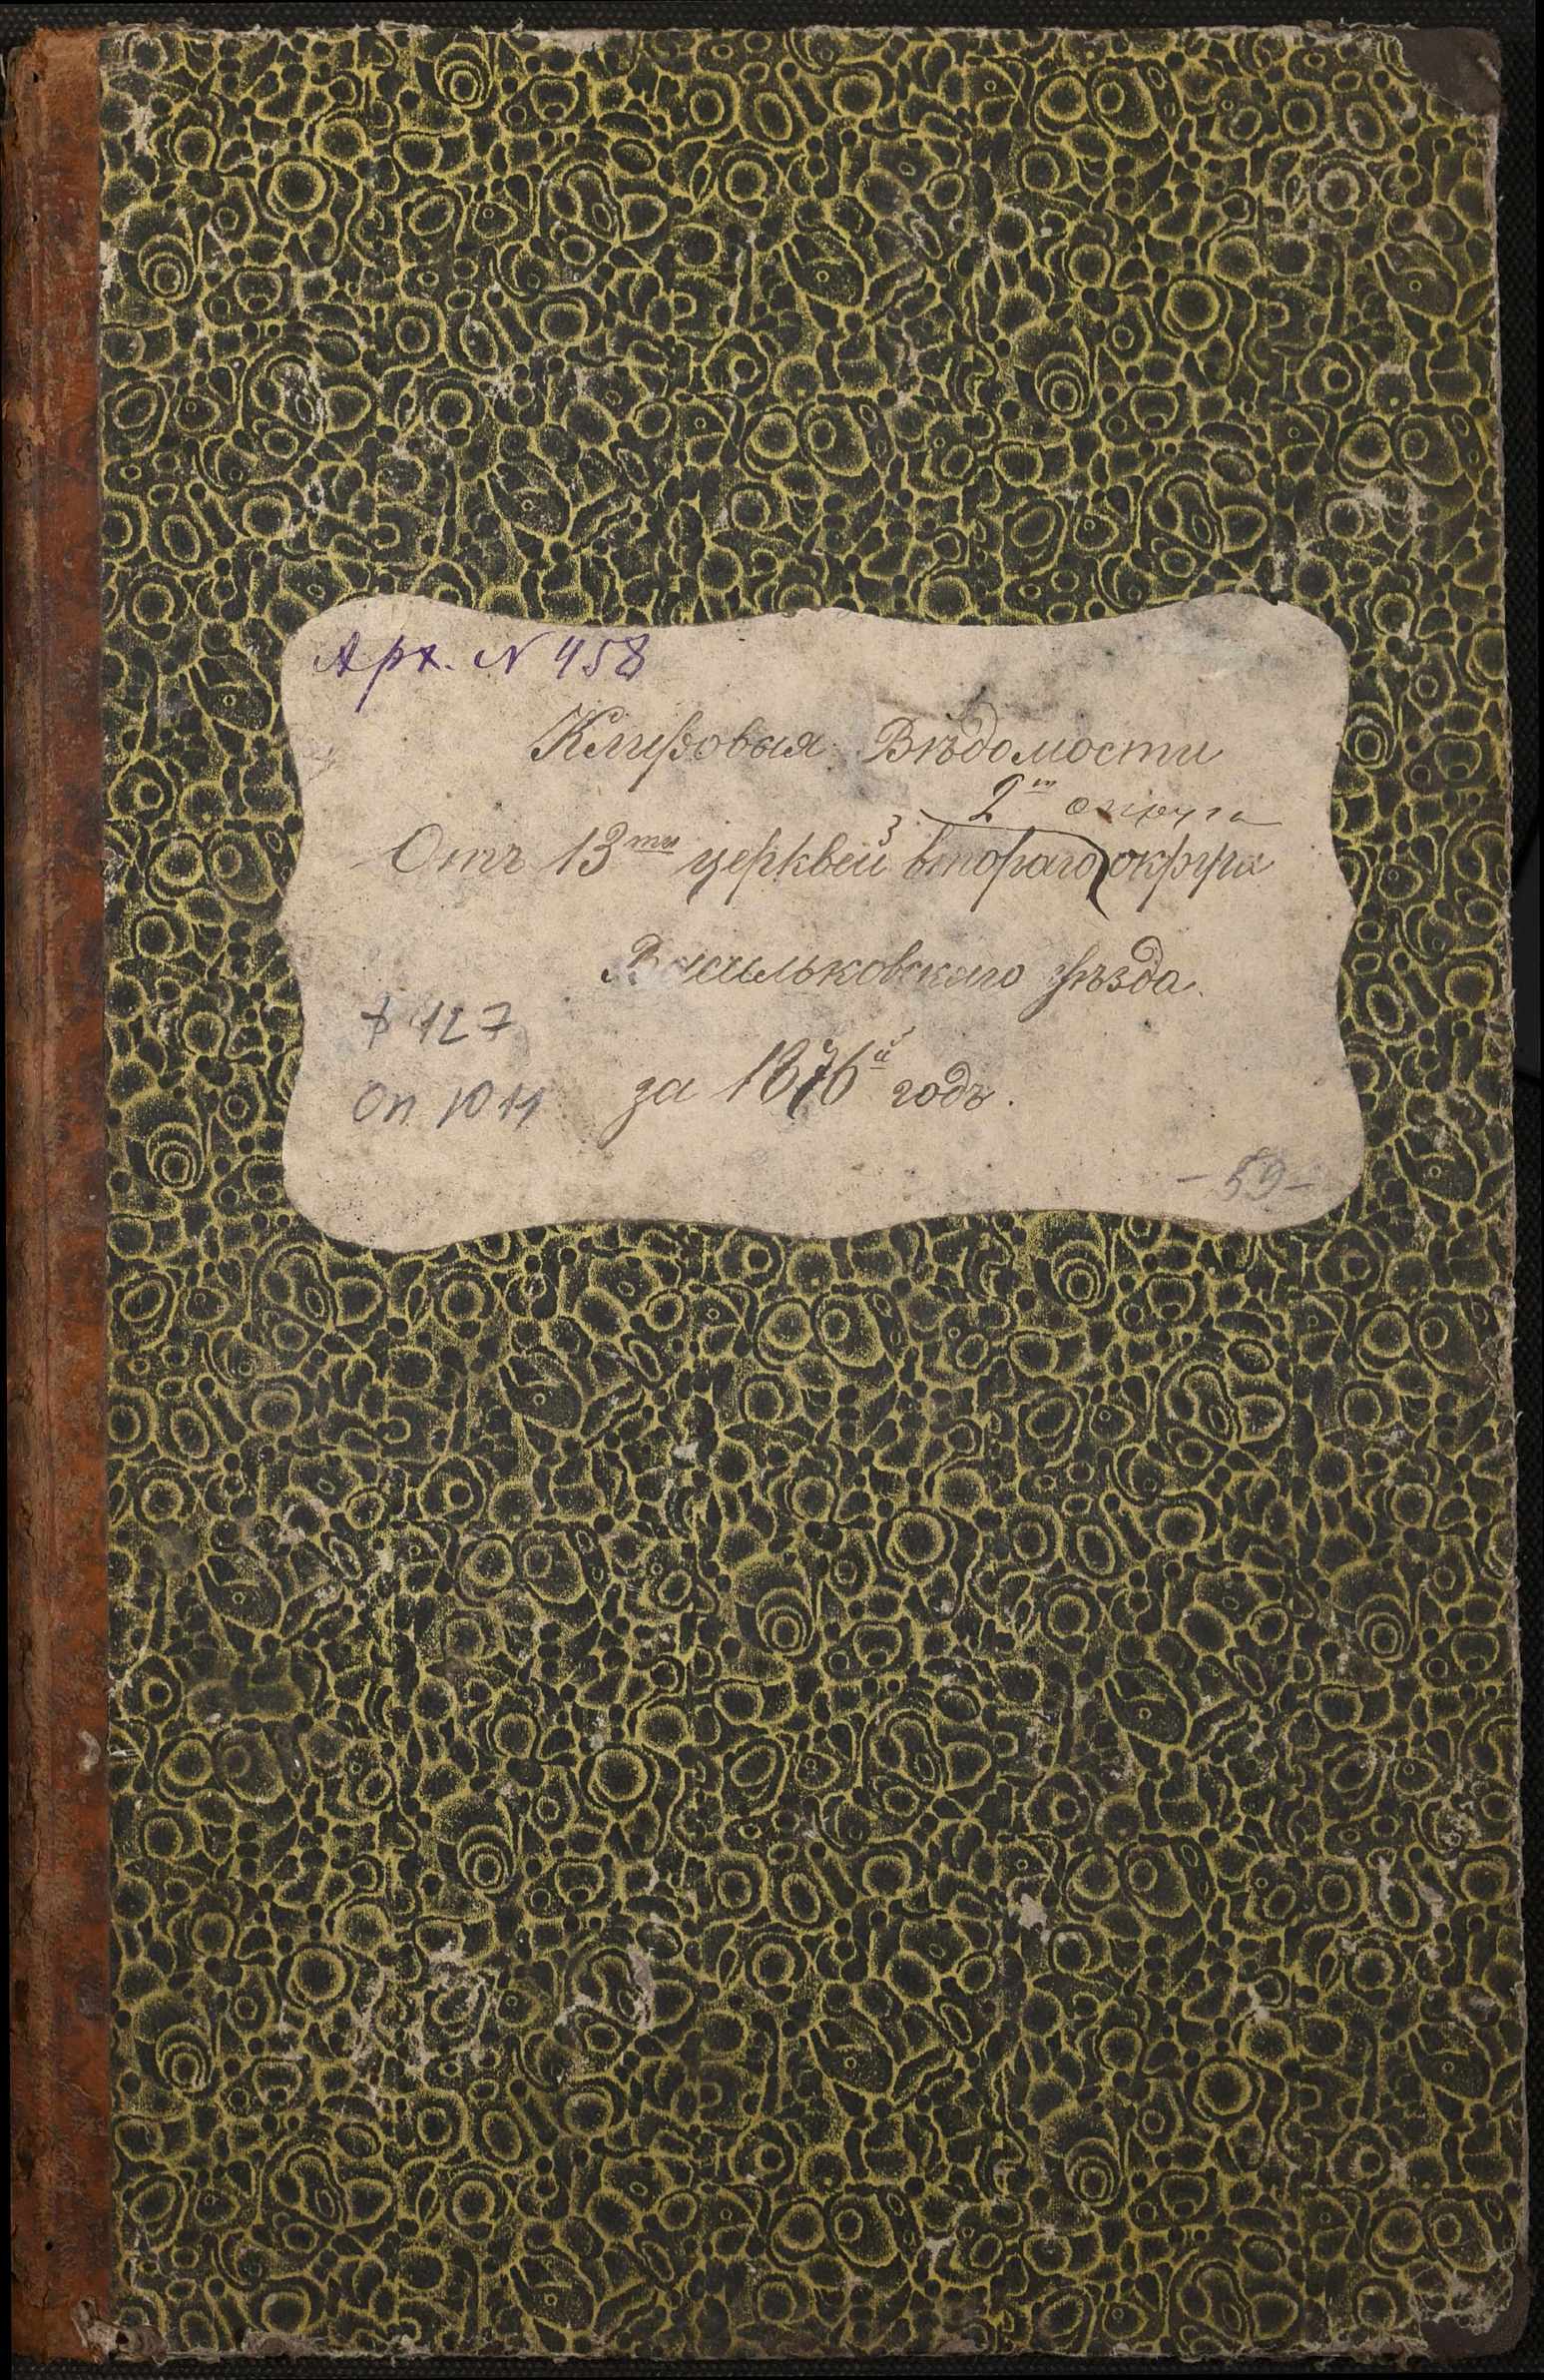 Арх. N 458
Клировыя Вѣдомости
2го округа
Отъ 13ти церквей 3 втораго округа
Васильковскаго уѣзда.
за 1876й годъ.
ф 127
Оп 1011
- 59 -